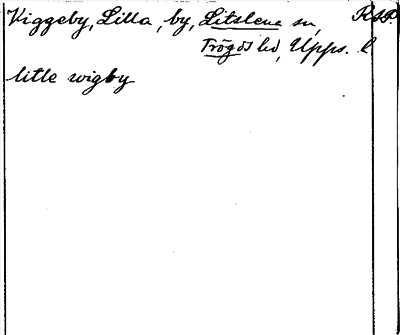 Viggeby, Lilla, by, Litslena sn,
Trögds hd, Upps. l
litle wigby